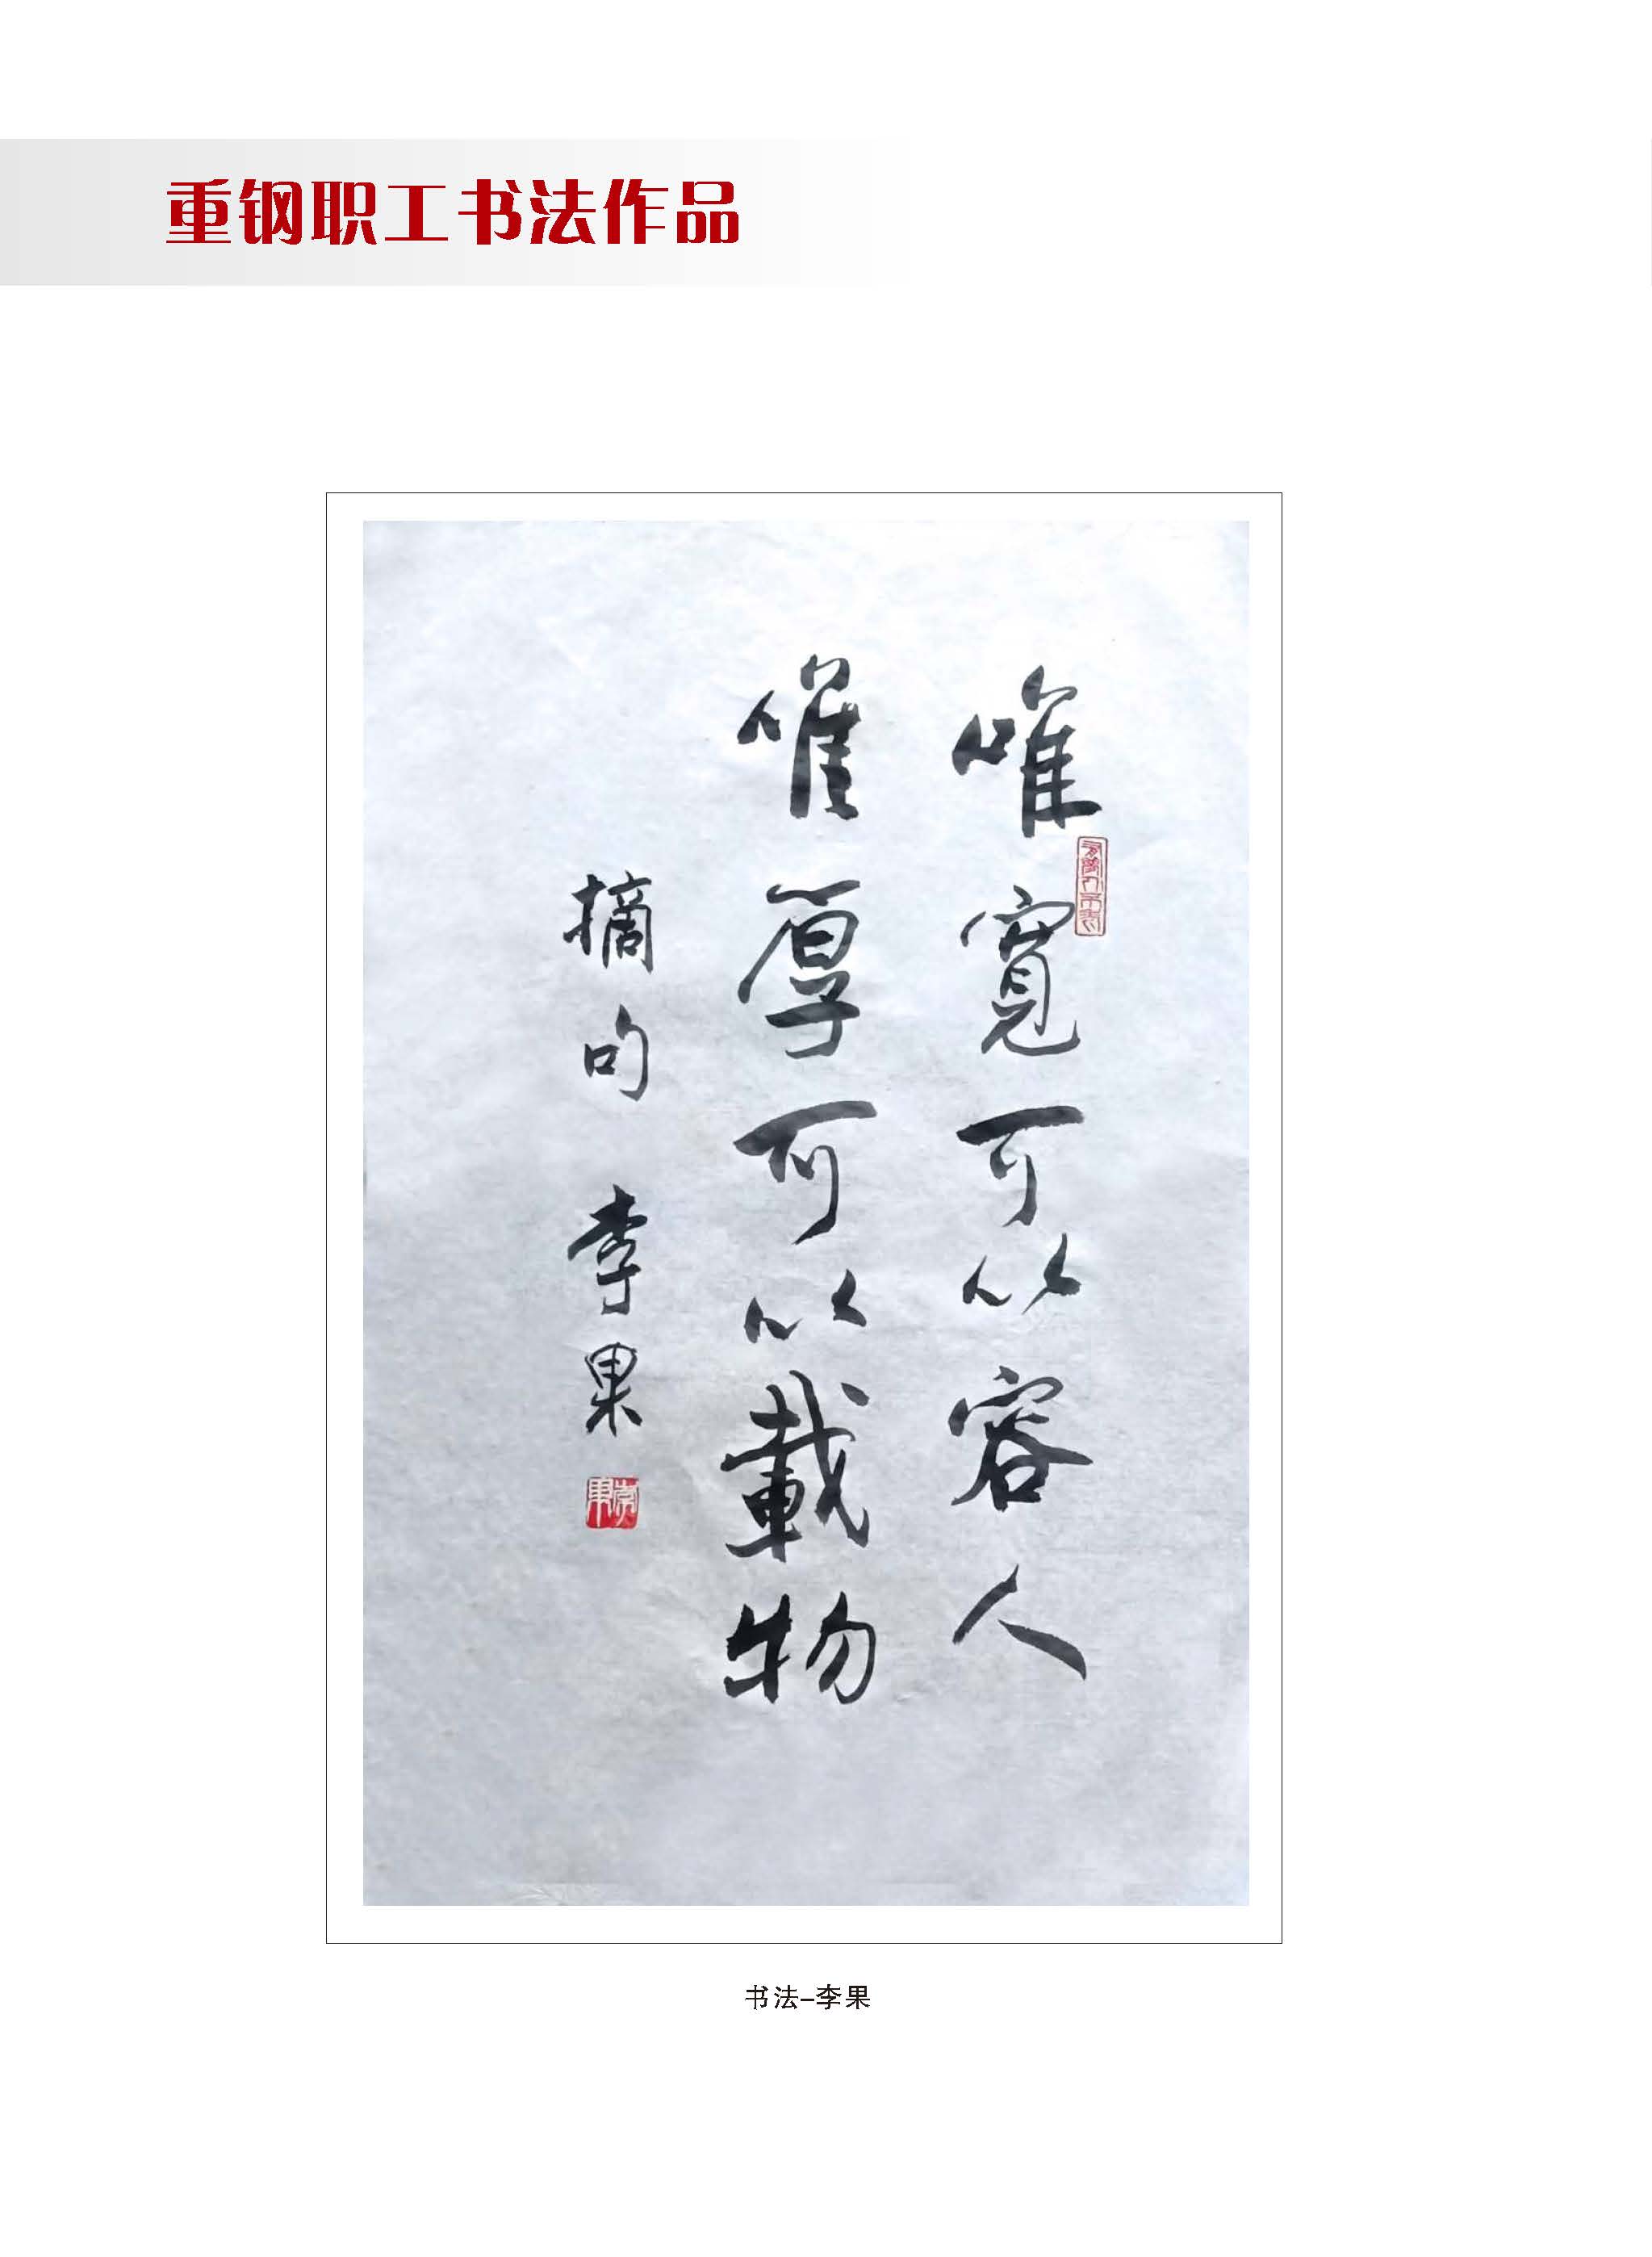 重钢职工书法作品
唯寬可以容人
唯厚可以載物
摘句 李果
李果
书法–李果